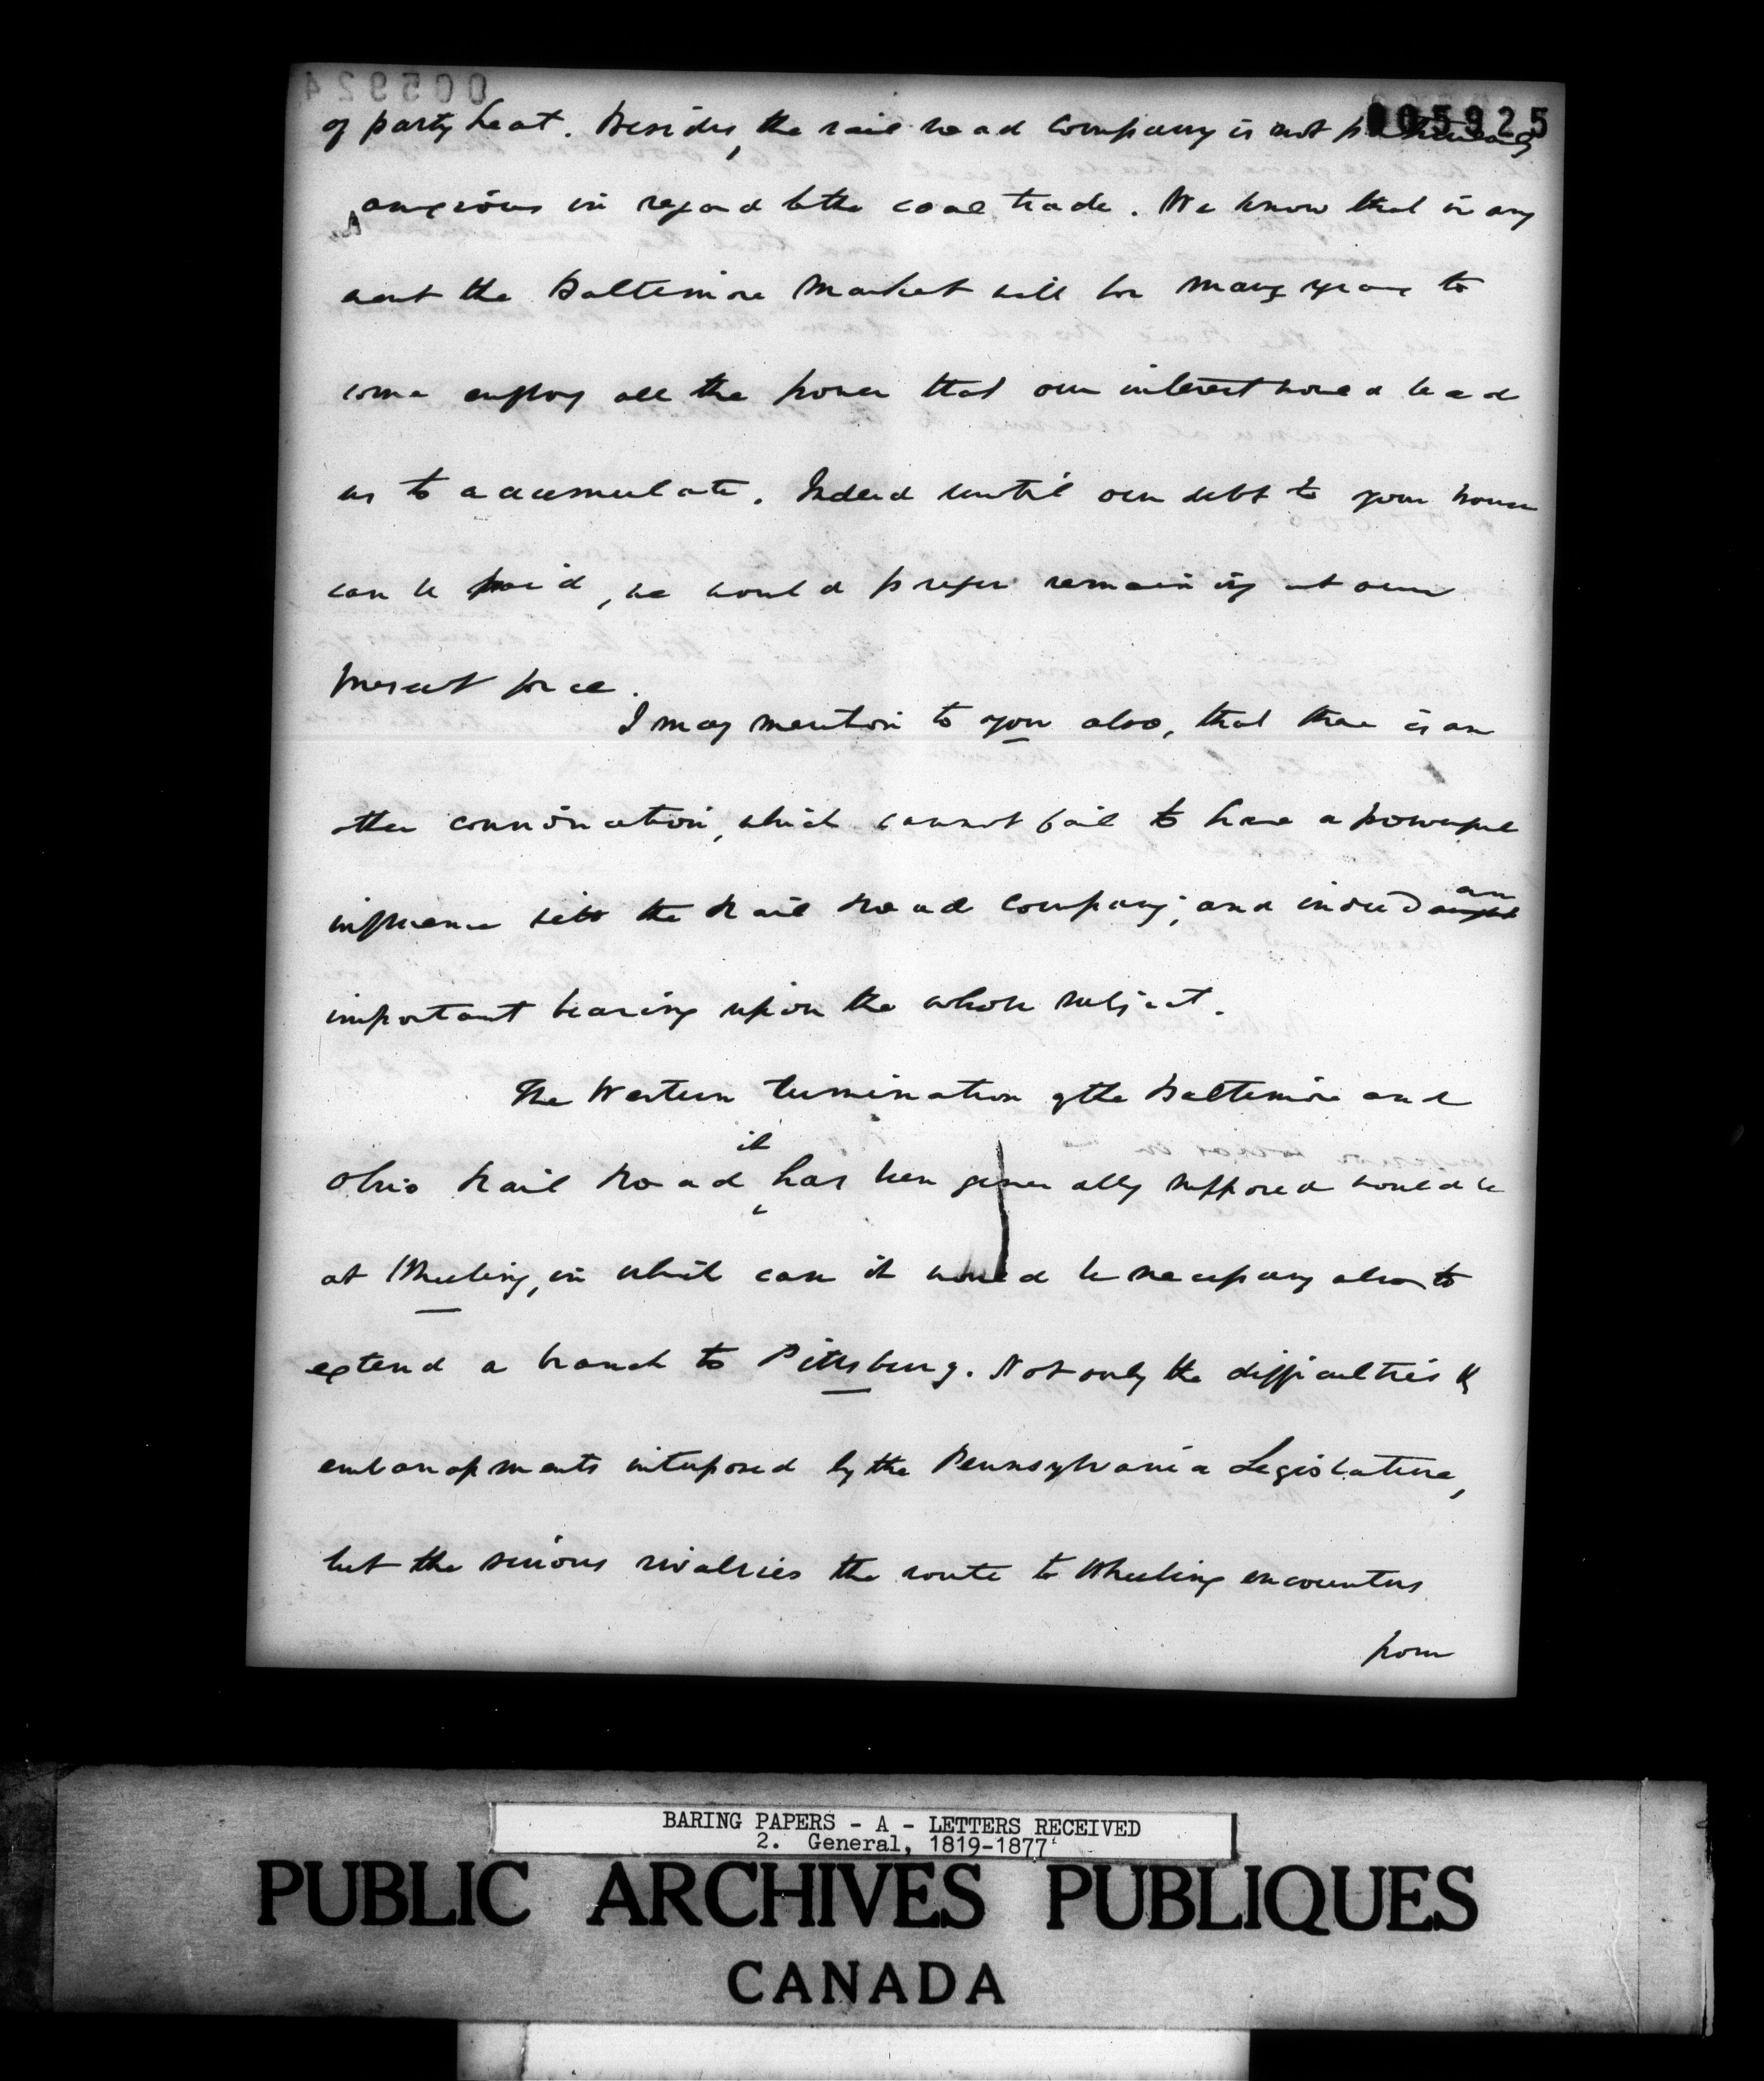 005924
005925
of party heat. Besides, the rail road company is not particularly
anxious in regard to the coal trade. We know that in any
event the Baltimore Market will for many years to
come employ all the power that our interest would lead
us to accumulate. Indeed until our debt to your house
can be paid, we would prefer remaining at our
present force.
I may mention to you also, that there is an
other connexion, which cannot fail to have a powerful
influence with the Rail Road Company; and indeed an
important bearing upon the whole subject.
The Western termination of the Baltimore and
Ohio Rail Road it has been generally supposed would be
at Wheeling, in which case it would be necessary also to
extend a branch to Pittsburg. Not only the difficulties &
embarrassments interposed by the Pennsylvania Legislature,
but the serious rivalries the route to Wheeling encounters
from
BARING PAPERS - A - LETTERS RECEIVED
2. General, 1819-1877
PUBLIC ARCHIVES PUBLIQUES
CANADA